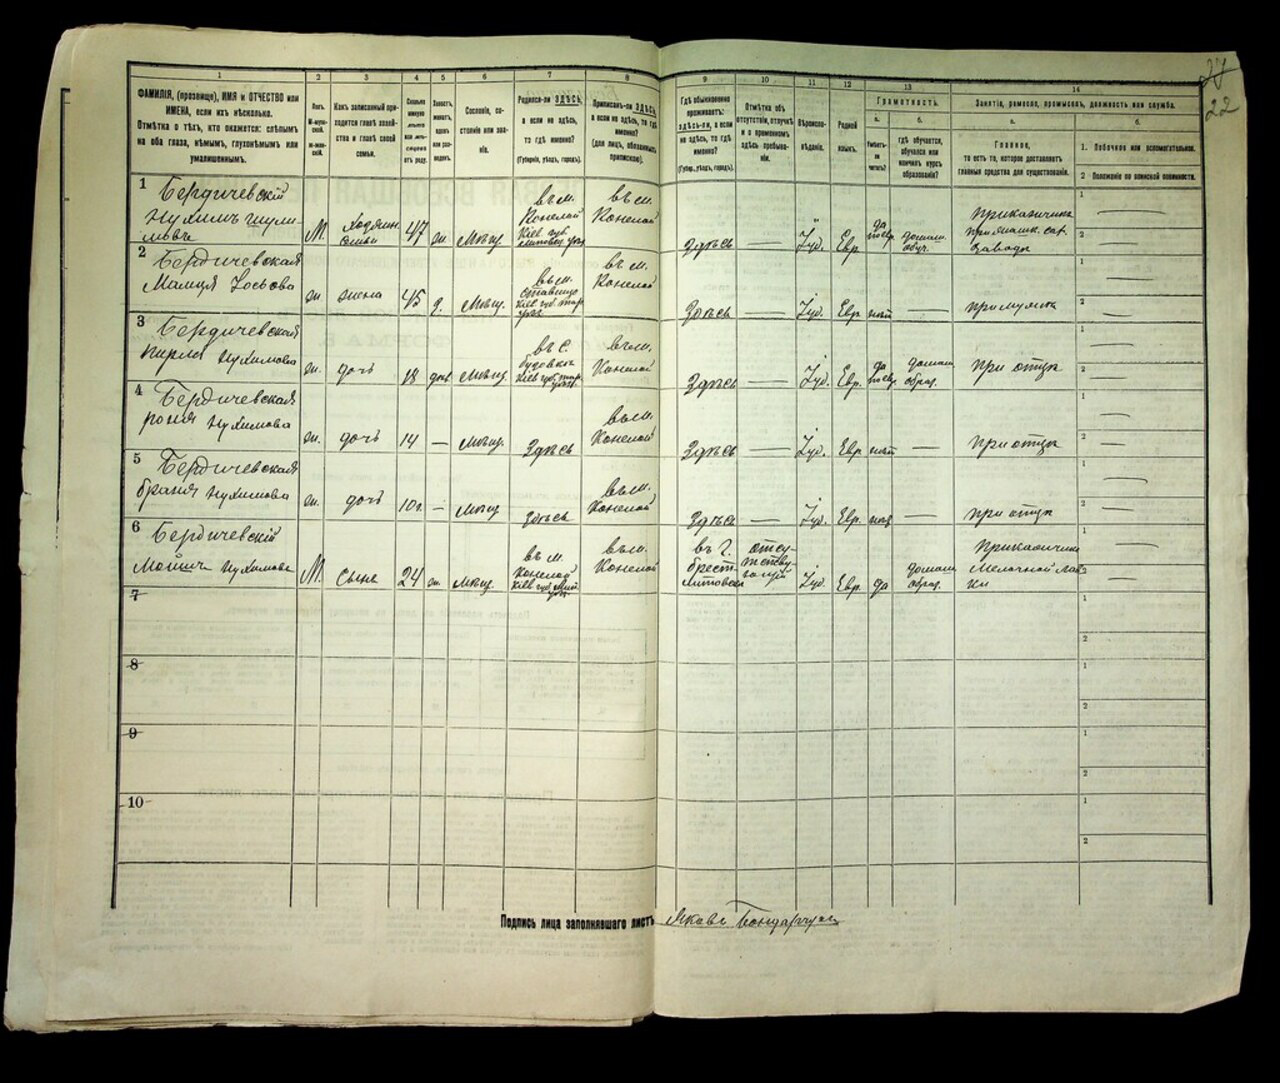 27
22
1
2
3
4
5
6
7
8
9
10
11
12
13
14
ФАМИЛІЯ, (прозвище), ИМЯ и ОТЧЕСТВО или
ИМЕНА, если ихъ нѣсколько.
Отмѣтка о тѣхъ, кто окажется: слѣпымъ
на оба глаза, нѣмымъ, глухонѣмымъ или
умалишеннымъ.
Полъ.
М-мужской.
Ж-женскій.
Какъ записанный приходится
главѣ хозяйства
и главѣ своей
семьи.
Сколько
минуло
лѣтъ
или мѣсяцевъ
отъ роду.
Холостъ,
женатъ,
вдовъ
или разведенъ.
Сословіе, состояніе
или званіе.
Родился-ли ЗДѢСЬ,
а если не здѣсь,
то гдѣ именно?
(Губернія, уѣздъ, городъ).
Приписанъ-ли ЗДѢСЬ,
а если не здѣсь, то гдѣ
именно?
(для лицъ, обязанныхъ
припискою).
Гдѣ обыкновенно
проживаетъ:
здѣсь-ли, а если
не здѣсь, то гдѣ
именно?
(Губер., уѣздъ, городъ).
Отмѣтка объ
отсутствіи, отлучкѣ
и о временномъ
здѣсь пребываніи.
Вѣроисповѣданіе.
Родной
языкъ.
Грамотность.
а.
Умѣетъ-ли
читать?
б.
гдѣ обучается,
обучался или
кончилъ курсъ
образованія?
Занятіе, ремесло, промыселъ, должность или служба.
а.
Главное,
то есть то, которое доставляетъ
главныя средства для существованія.
б.
1. Побочное или вспомогательное.
2 Положеніе по воинской повинности.
1 Бердичевскій
Нухимъ Шулимовъ
М. Хозяин семьи 47 ж. мѣщ. въ м. Конелой Кіев. губ. въ м. Конелой Здѣсь — Іуд. Евр. да
2 Бердичевская
ж. жена 45 з. мѣщ. въ м. Кіев. губ. въ м. Конелой Здѣсь — Іуд. Евр. нѣт — при мужѣ
3 Бердичевская
Перля Нухимова
ж. дочь 18 мѣщ. въ с. Кіев. губ. въ м. Конелой Здѣсь — Іуд. Евр. да домаш. образ. при отцѣ
4 Бердичевская
Роня Нухимова
ж. дочь 14 — мѣщ. Здѣсь въ м. Конелой Здѣсь — Іуд. Евр. нѣт — при отцѣ
5 Бердичевская
Браня Нухимова
ж. дочь 10 — мѣщ. Здѣсь въ м. Конелой Здѣсь — Іуд. Евр. нѣт — при отцѣ
6 Бердичевскій
Нухимовъ
М. Сынъ 24 ж. мѣщ. въ м. Конелой Кіев. губ. въ м. Конелой въ г. Брест Литовскъ отсутствующій Іуд. Евр. да домаш. образ. Приказчикъ мелочной лавки
7
8
9
10
Подпись лица заполнявшаго листъ Яковъ Бондарчукъ